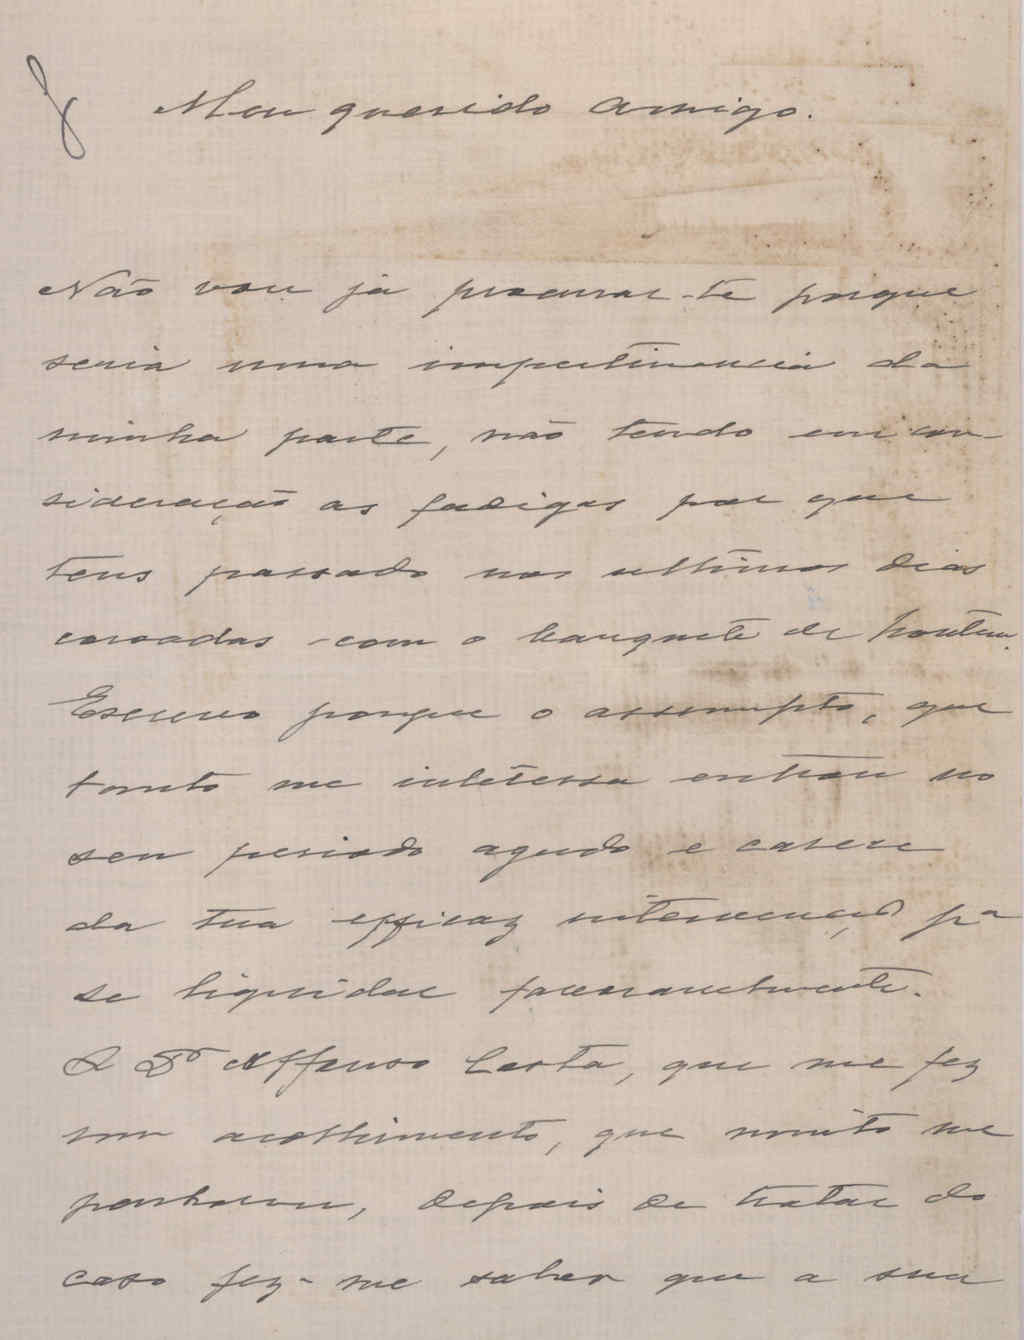 Meu querido amigo.
Não vou já procurar-te porque
seria uma impertinencia da
minha parte, não tendo em con-
sideração as fadigas por que
tens passado nos ultimos dias
coroadas com o banquete de hontem.
Escrevo porque o assumpto, que
tanto me interessa entrou no
seu periodo agudo e carece
da tua efficaz intervenção pª
se liquidar favoravelmente.
O Dr Affonso Costa, que me fez
um acolhimento, que muito me
penhorou, depois de tratar do
caso fez-me saber que a sua